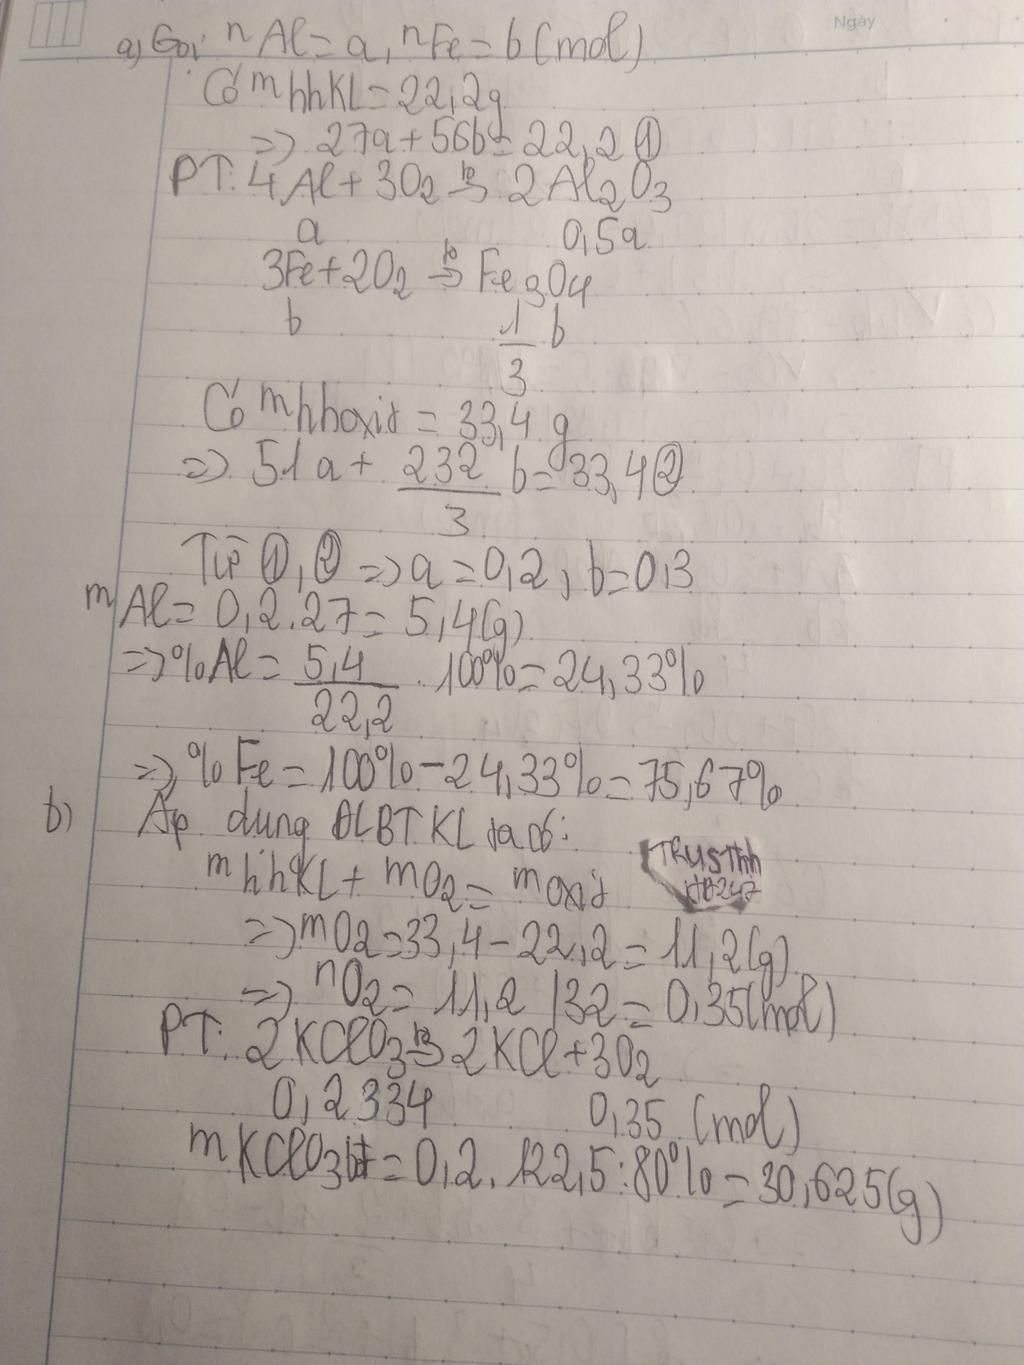 Ngày
a) Gọi nAl = a, nFe = b (mol)
Có mhhKL = 22,2g
=> 27a + 56b = 22,2 ①
PT: 4Al + 3O2 t°→ 2Al2O3
a 0,5a
3Fe + 2O2 t°→ Fe3O4
b 1/3 b
Có mhhoxit = 33,4 g
=> 51a + 232/3 b = 33,4 ②
Từ ①, ② => a = 0,2, b = 0,3
mAl = 0,2.27 = 5,4(g)
=> %Al = 5,4/22,2 . 100% = 24,33%
=> %Fe = 100% - 24,33% = 75,67%
b) Áp dụng ĐLBTKL ta có:
mhhKL + mO2 = moxit
TRUSThh
HB247
=> mO2 = 33,4 - 22,2 = 11,2(g)
=> nO2 = 11,2 / 32 = 0,35(mol)
PT: 2KClO3 t°→ 2KCl + 3O2
0,2334 0,35 (mol)
mKClO3bđ = 0,2.122,5:80% = 30,625(g)